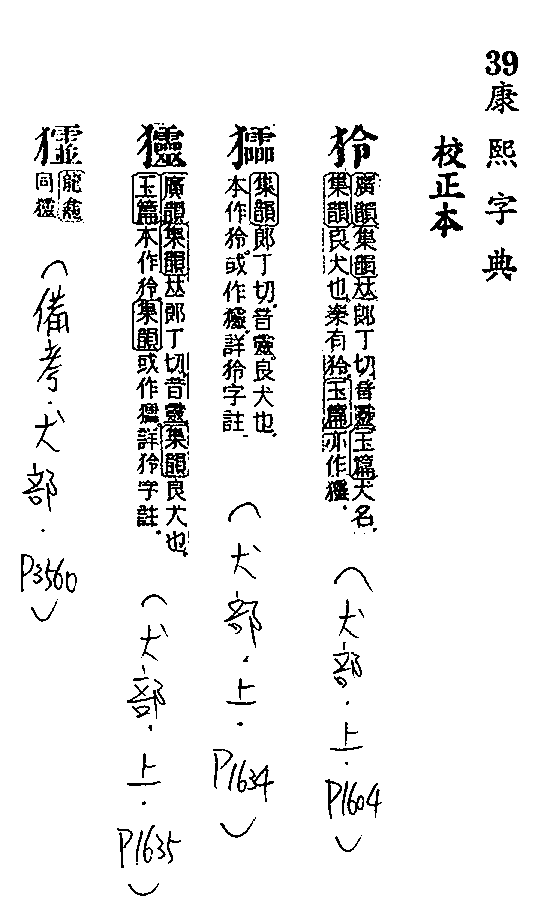 39康熙字典
校正本
狑
廣韻集韻𠀤郎丁切音靈玉篇犬名
集韻良犬也秦有狑玉篇亦作
(犬部.上.P1604)
集韻郎丁切音靈良犬也
本作狑或作 詳狑字註
(犬部.上.P1634)
廣韻集韻𠀤郎丁切音靈集韻良犬也
玉篇本作狑集韻或作 詳狑字註
(犬部.上.P1635)
龍龕
同
(備考.犬部.P3560)